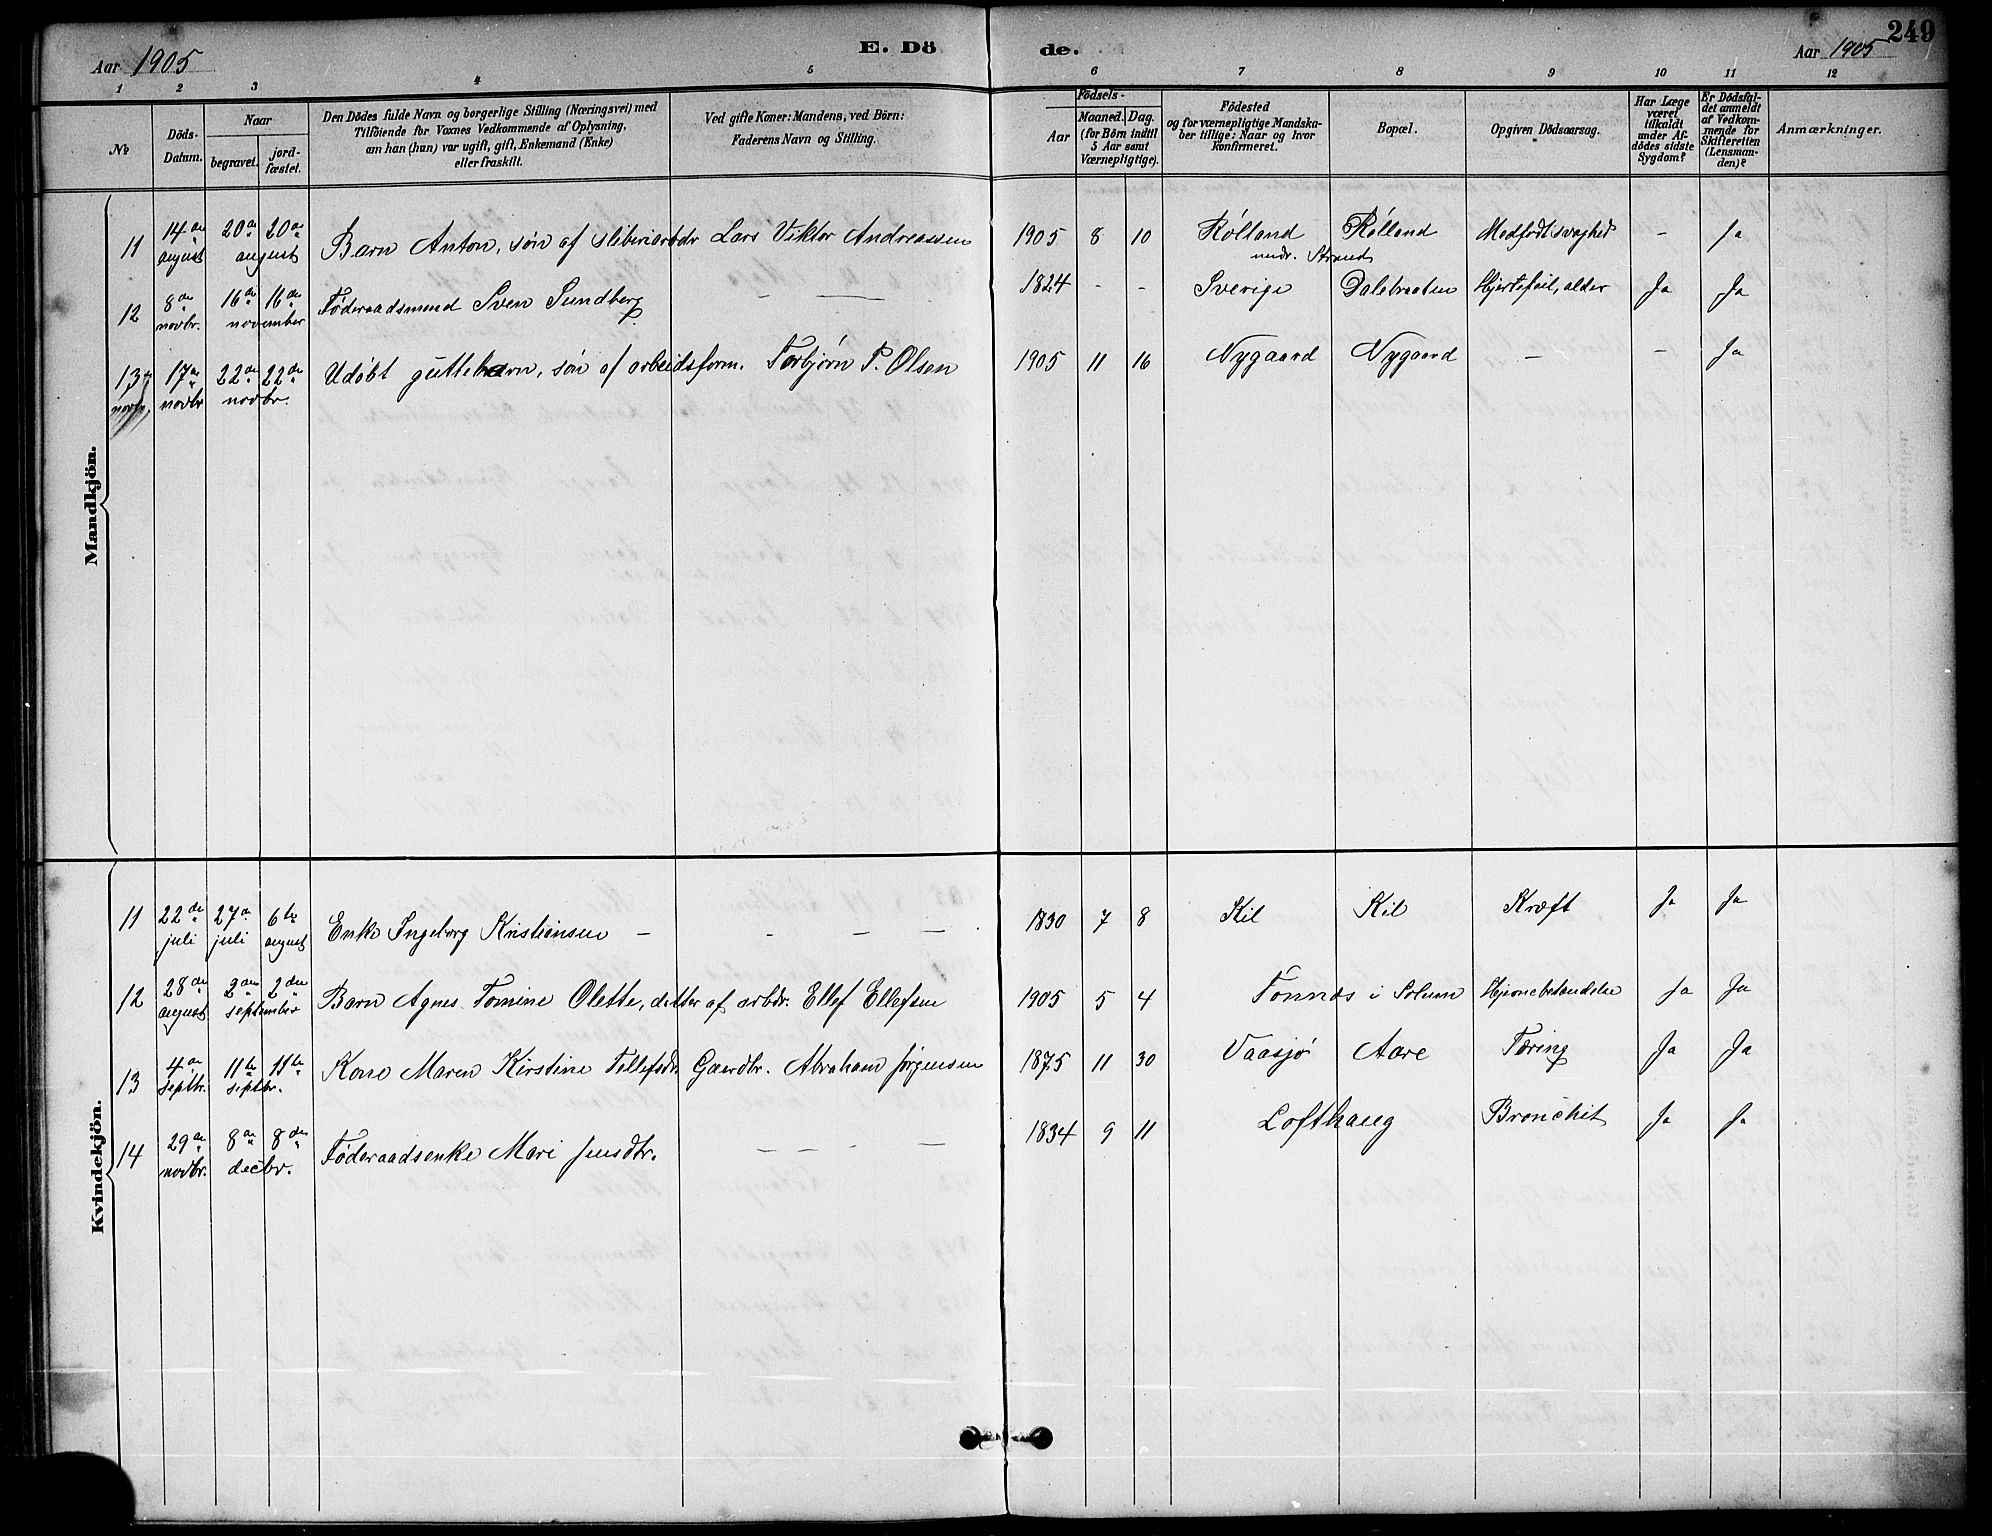 Aar 1905 E. Dö de. Aar 1905 249
1 2 3 4 5 6 7 8 9 10 11 12
№
Döds-Datum.
Naar
begravet.
jord-fæstet.
Den Dödes fulde Navn og borgerlige Stilling (Næringsvei) med
Tilföiende for Voxnes Vedkommende af Oplysning,
om han (hun) var ugift, gift, Enkemand (Enke)
eller fraskilt.
Ved gifte Koner: Mandens, ved Börn:
Faderens Navn og Stilling.
Födsels-
Aar
Maaned. Dag.
(for Börn indtil
5 Aar samt
Værnepligtige).
Födested
og for værnepligtige Mandska-
ber tillige: Naar og hvor
konfirmeret.
Bopæl.
Opgiven Dödsaarsag.
Har Læge
været
tilkaldt
under Af-
dödes sidste
Sygdom?
Er Dödsfal-
det anmeldt
af Vedkom-
mende for
Skifteretten
(Lensman-
den)?
Anmærkninger.
Mandkjön.
11 14de august 20de 20de august Barn Anton, søn af sliberiarbdr Lars Viktor Andreassen 1905 8 10 Rølland undr. Strand Rølland Medfødt svaghed - Ja
12 8de novbr. 16de 16de november Føderaadsmand Sven Sundberg - — 1824 - - Sverige Dalebraaten Hjertefeil, alder Ja Ja
13 novbr. 17de novbr 22de 22de novbr. Udøbt guttebarn, søn af arbeidsform. Torbjørn P. Olsen 1905 11 16 Nygaard Nygaard — - Ja
Kvindekjön.
11 22de juli 27de juli 6te august Enke Ingeborg Kristiansen — - — — 1830 7 8 Kil Kil Kræft Ja Ja
12 28de august 2den 2den september Barn Agnes Tomine Olette, datter af arbdr. Ellef Ellefsen 1905 5 4 Tonnes i Solum Hjernebetændelse Ja Ja
13 4de septbr. 11te 11te septbr. Kone Maren Kirstine Tellefsdr. Gaardbr. Abraham Jørgensen 1875 11 30 Vaasjø Aare Tæring Ja Ja
14 29de novbr. 8de 8de decbr. Føderaadsenke Mari Jensdtr. — — - — 1834 9 11 Lofthaug Bronchit Ja Ja